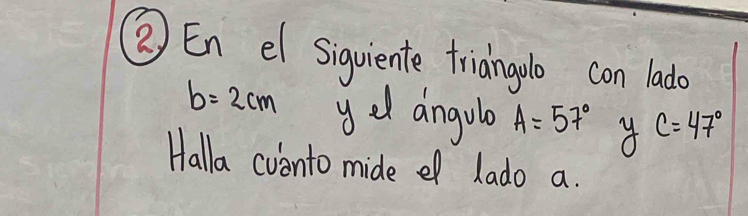 2. En el siguiente triángulo con lado
b = 2cm y el ángulo A = 57° y C = 47°
Halla cuánto mide el lado a.